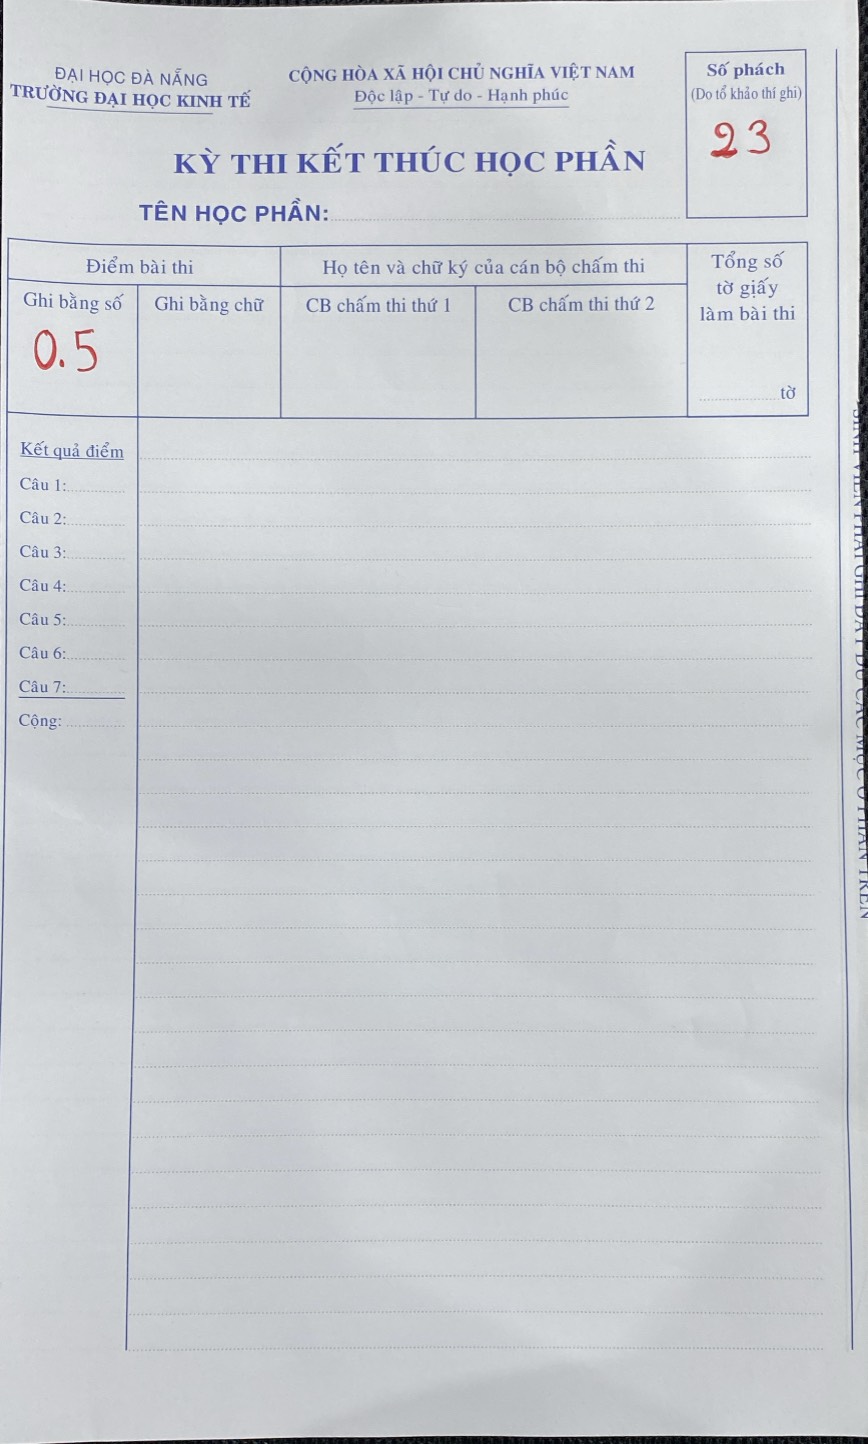 ĐẠI HỌC ĐÀ NẴNG
TRƯỜNG ĐẠI HỌC KINH TẾ
CỘNG HÒA XÃ HỘI CHỦ NGHĨA VIỆT NAM
Độc lập - Tự do - Hạnh phúc
Số phách
(Do tổ khảo thí ghi)
23
KỲ THI KẾT THÚC HỌC PHẦN
TÊN HỌC PHẦN:
Điểm bài thi
Họ tên và chữ ký của cán bộ chấm thi
Tổng số
tờ giấy
làm bài thi
Ghi bằng số
Ghi bằng chữ
CB chấm thi thứ 1
CB chấm thi thứ 2
0.5
tờ
Kết quả điểm
Câu 1:
Câu 2:
Câu 3:
Câu 4:
Câu 5:
Câu 6:
Câu 7:
Cộng: